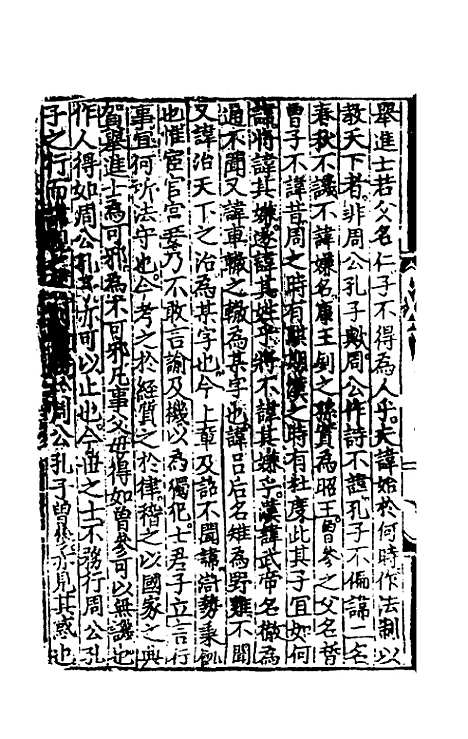 舉進士若父名仁子不得為人乎夫諱始於何時作法制以
教天下者非周公孔子歟周公作詩不諱孔子不偏諱二名
春秋不譏不諱嫌名康王釗之孫實為昭王曾參之父名晳
曾子不諱昔周之時有騏期漢之時有杜度此其子宜如何
諱將諱其嫌遂諱其姓乎將不諱其嫌乎漢諱武帝名徹為
通不聞又諱車轍之轍為某字也諱吕后名雉為野雞不聞
又諱治天下之治為某字也今上章及詔不聞諱滸勢秉飢
也惟宦官宫妾乃不敢言諭及機以為觸犯士君子立言行
事宜何所法守也今考之於經質之於律稽之以國家之典
賀舉進士為可邪為不可邪凡事父母得如曾參可以無譏也
作人得如周公孔子亦可以止也今世之士不務行周公孔
子之行而諱周公孔子曾參亦見其惑也